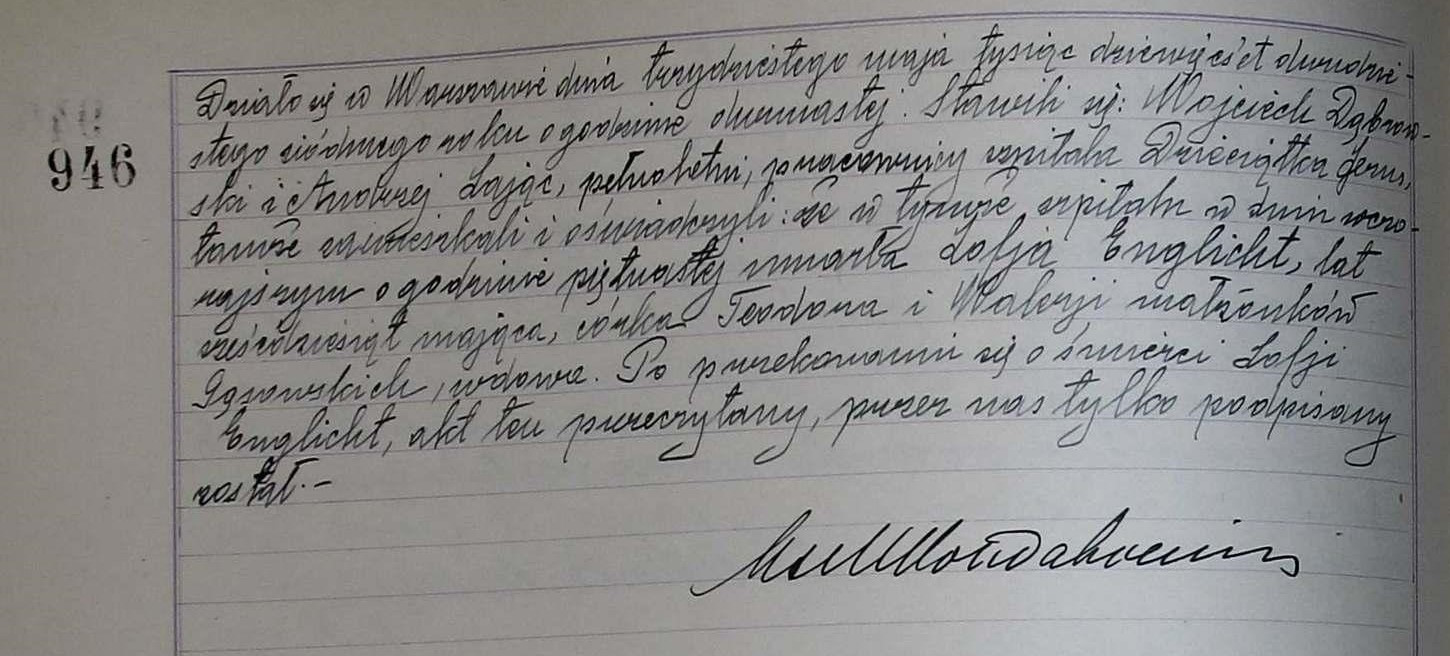 946
Działo się w Warszawie dnia trzydziestego maja tysiąc dziewięćset dwudzie-
stego siódmego roku o godzinie dwunastej. Stawili się: Wojciech Dąbrow-
ski i Andrzej Zając, pełnoletni, pracownicy szpitala Dzieciątka Jezus,
tamże zamieszkali i oświadczyli: że w tymże szpitalu w dniu wczo-
rajszym o godzinie piętnastej umarła Zofja Englicht, lat
sześćdziesiąt mająca, córka Teodora i Walerji małżonków
Gąsowskich, wdowa. Po przekonaniu się o śmierci Zofji
Englicht, akt ten przeczytany, przez nas tylko podpisany
został.-